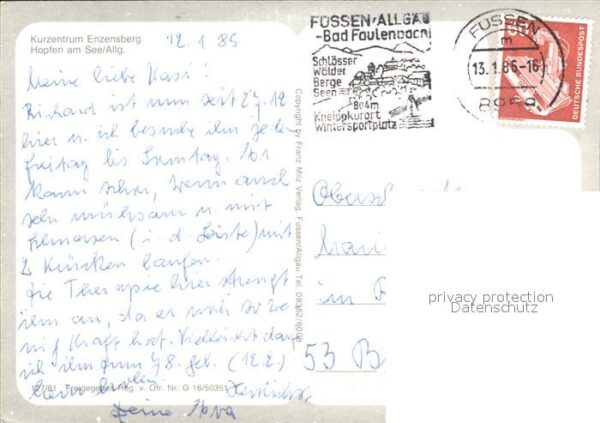 Kurzentrum Enzensberg
Hopfen am See/Allg.
12.1.85
Meine liebe Kasi!
Richard ist nun seit 27.12
hier u. ich besuche ihn jeden
Freitag bis Samstag. Er
kann schon, wenn auch
sehr mühsam u. mit
Schmerzen (i. d. Leiste) mit
2 Krücken laufen.
Die Therapie hier strengt
ihn an, da er noch so
Kraft hat. Vielleicht darf
ich ihn zum 78. geb. (12.2.)
127/81 Freigegeben Reg. v. Obr. Nr. G 16/5035
Deine
Copyright by Franz Milz Verlag, Füssen/Allgäu Tel. 08362/6008
FÜSSEN/ALLGÄU
-Bad Faulenbach
Schlösser
Wälder
Berge
Seen
804m
Kneippkurort
Wintersportplatz
FÜSSEN
13.1.86-16
8958
80
DEUTSCHE BUNDESPOST
im
53 B
privacy protection
Datenschutz